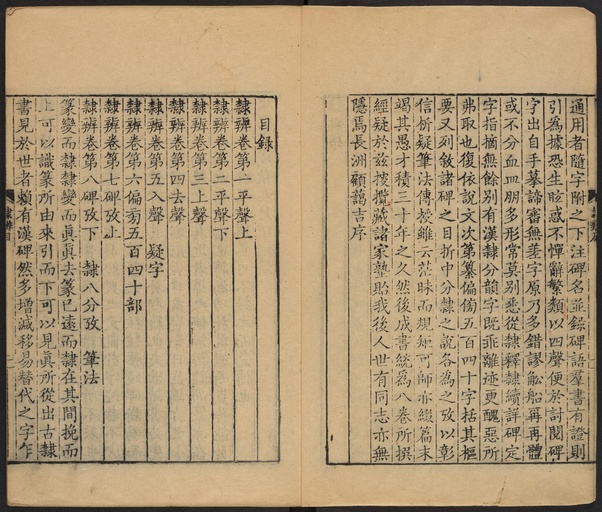 通用者隨字附之下注碑名並錄碑語羣書有證則
引為據恐生眩惑不憚辭繁類以四聲便於討閱碑
字出自手摹諦審無差字原乃多錯謬舩船再再體
或不分血皿朋多形常莫別悉從隸釋隸續詳碑定
字指摘無餘別有漢隸分韻字既乖離迹更醜惡所
弗取也復依說文次第纂偏傍五百四十字括其樞
要又列敘諸碑之目折中分隸之說各為之攷以彰
信析疑筆法傳授雖云茫昧而規矩可師亦綴篇末
竭其愚才積三十年之久然後成書統為八卷所撰
經疑於玆搜攬藏諸家塾貽我後人世有同志亦無
隱焉長洲顧藹吉序
目錄
隸辨卷第一平聲上
隸辨卷第二平聲下
隸辨卷第三上聲
隸辨卷第四去聲
隸辨卷第五入聲 疑字
隸辨卷第六偏㫄五百四十部
隸辨卷第七碑攷上
隸辨卷第八碑攷下 隸八分攷 筆法
篆變而隸隸變而眞眞去篆已遠而隸在其間挽而
上可以識篆所由來引而下可以見眞所從出古隸
書見於世者賴有漢碑然多增減移易替代之字作